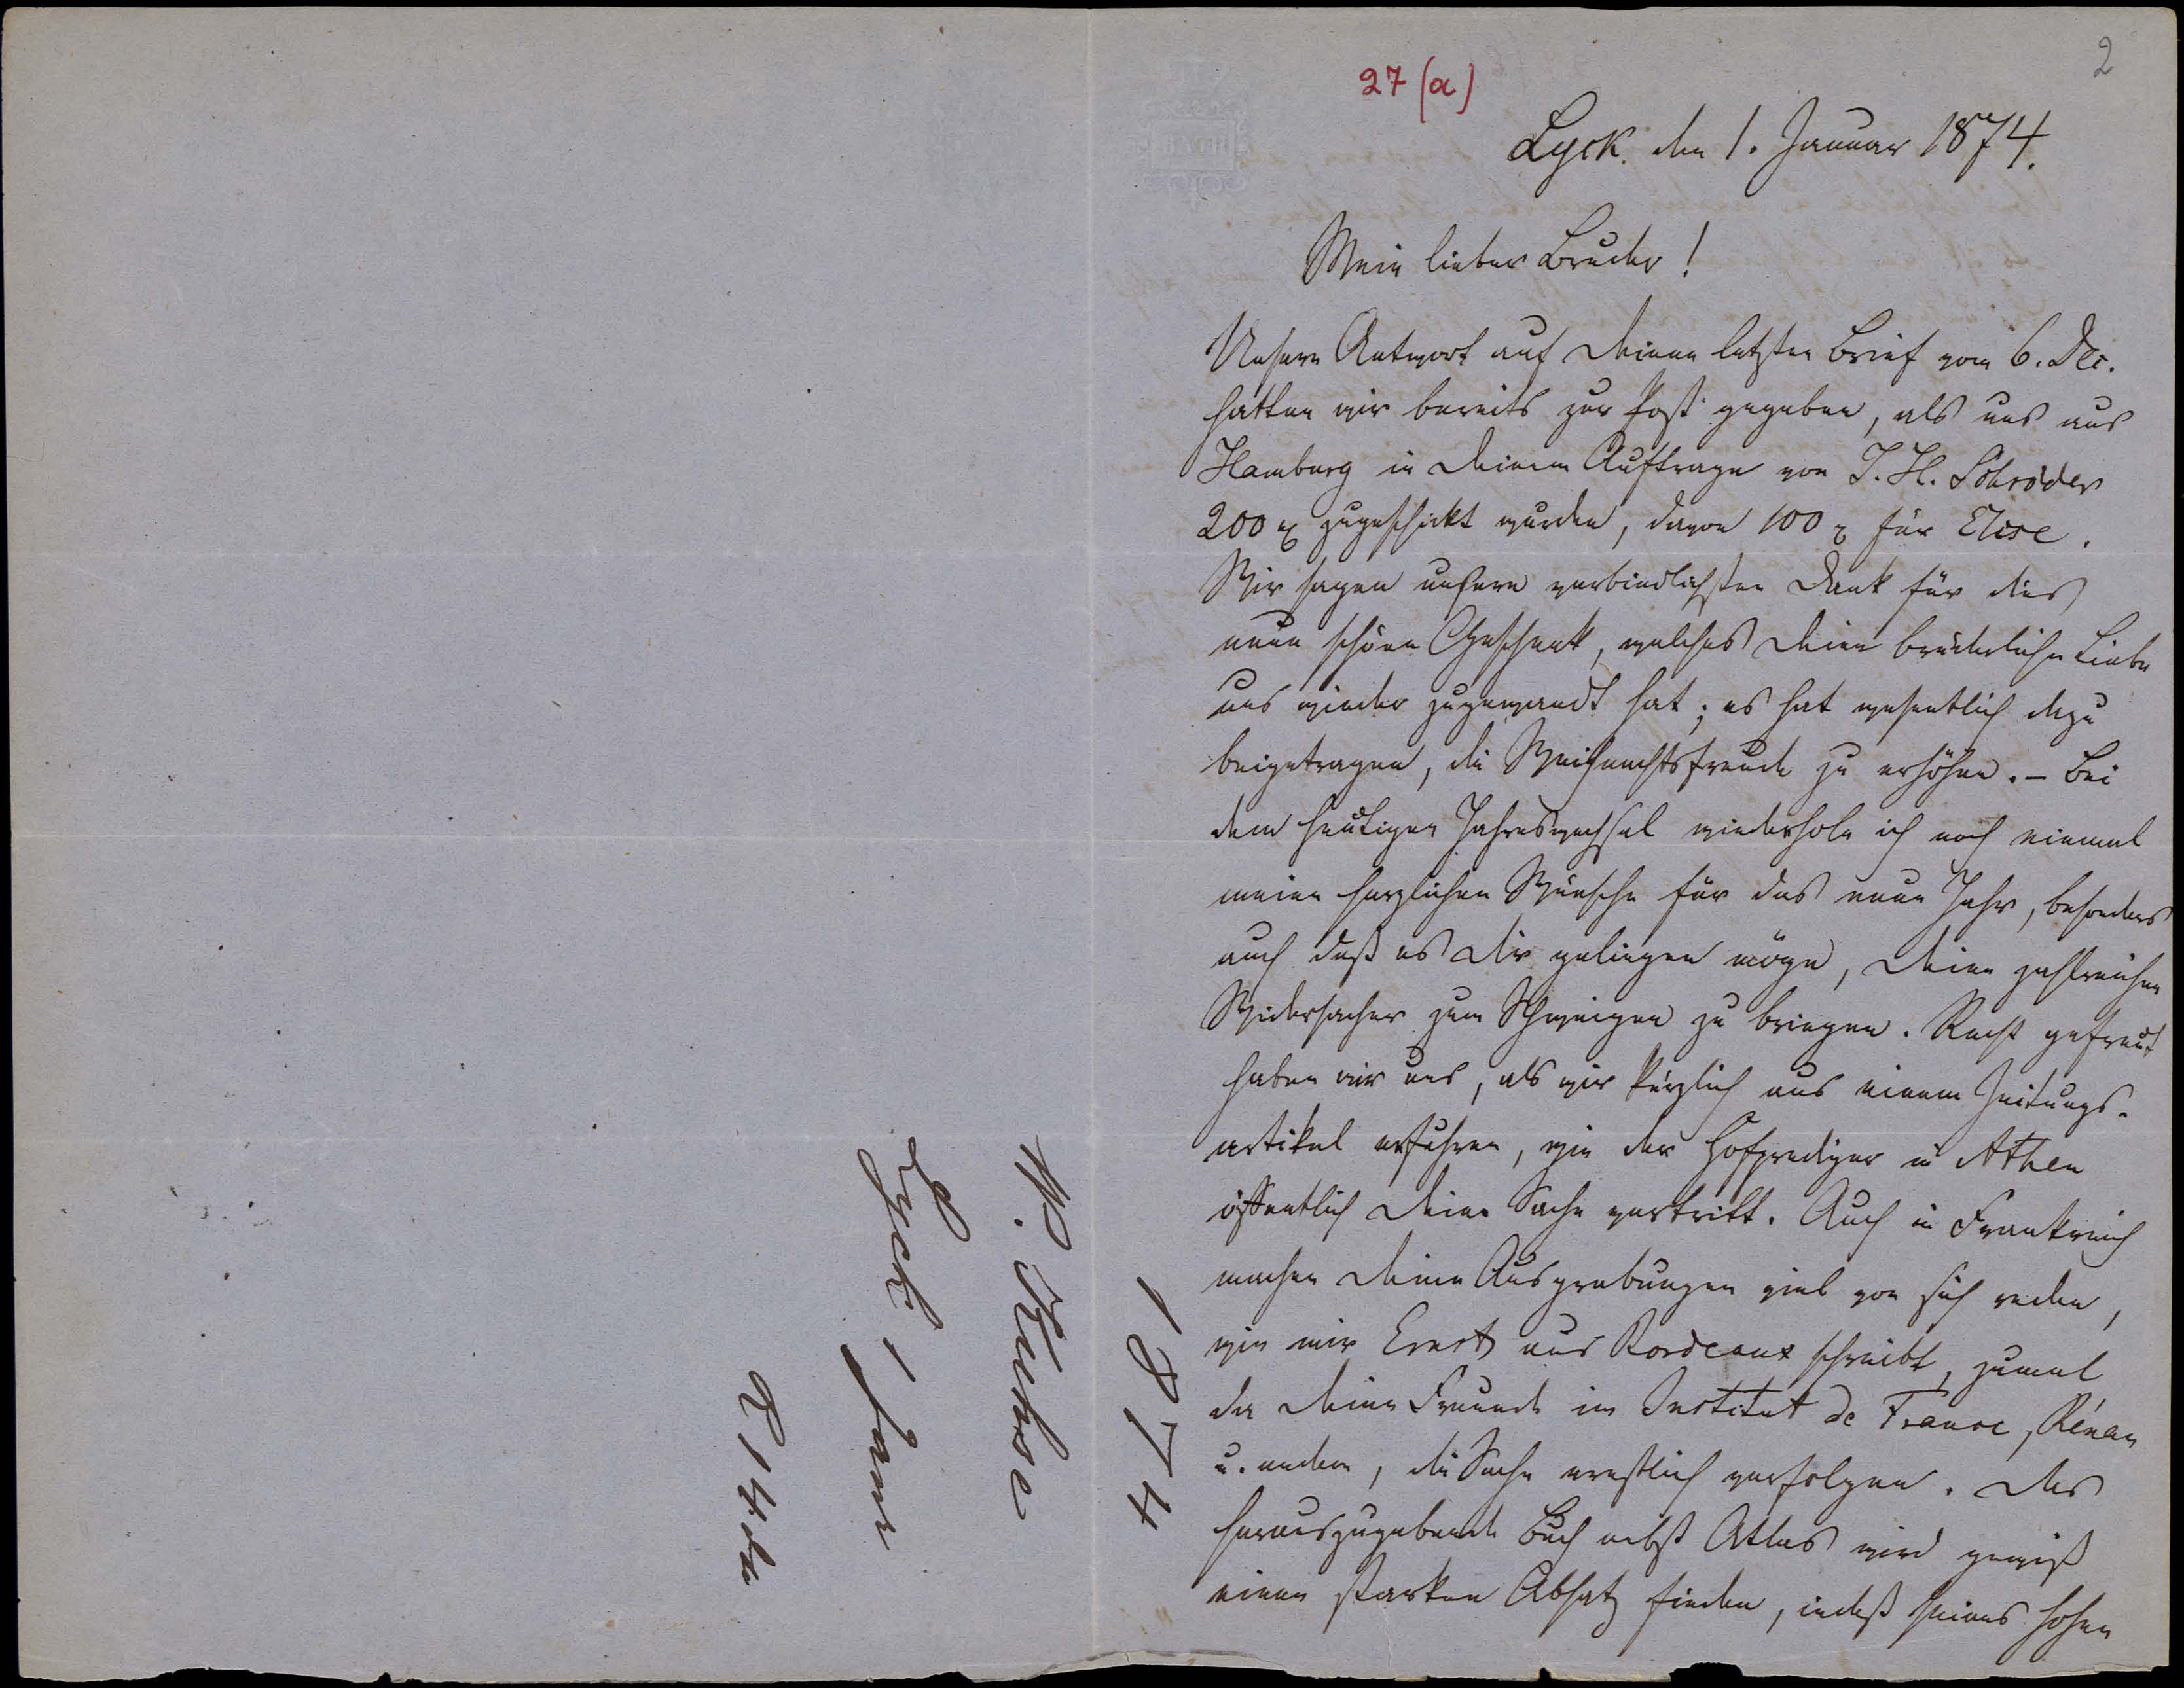 2
27 (a)
Lyck. den 1. Januar 1874.
Mein lieber Bruder!
Unsere Antwort auf Deinen letzten Brief vom 6. Dec.
hatten wir bereits zur Post gegeben, als uns aus
Hamburg in Deinem Auftrage von J. H. Schröder
200 zugeschickt wurden, davon 100 für Elise.
Wir sagen unsern verbindlichsten Dank für dies
neue schöne Geschenk, welches Deine brüderliche Liebe
uns wieder zugewandt hat; es hat wesentlich dazu
beigetragen, die Weihnachtsfreude zu erhöhen. – Bei
dem heutigen Jahreswechsel wiederhole ich noch einmal
meine herzlichen Wünsche für das neue Jahr, besonders
auch daß es Dir gelingen möge, Deine zahlreichen
Widersacher zum Schweigen zu bringen. Recht gefreut
haben wir uns, als wir kürzlich aus einem Zeitungs-
artikel erfuhren, wie der Hofprediger in Athen
öffentlich Deine Sache vertritt. Auch in Frankreich
machen Deine Ausgrabungen viel von sich reden,
wie mir Ernst aus Bordeaux schreibt, zumal
da Deine Freunde im Institut de France, Rénan
u. andere, die Sache ernstlich verfolgen. Das
herauszugebende Buch nebst Atlas wird gewiß
einen starken Absatz finden, indeß seines hohen
1874
W. Kuhse
Lyck 1 Janr
R 14 do